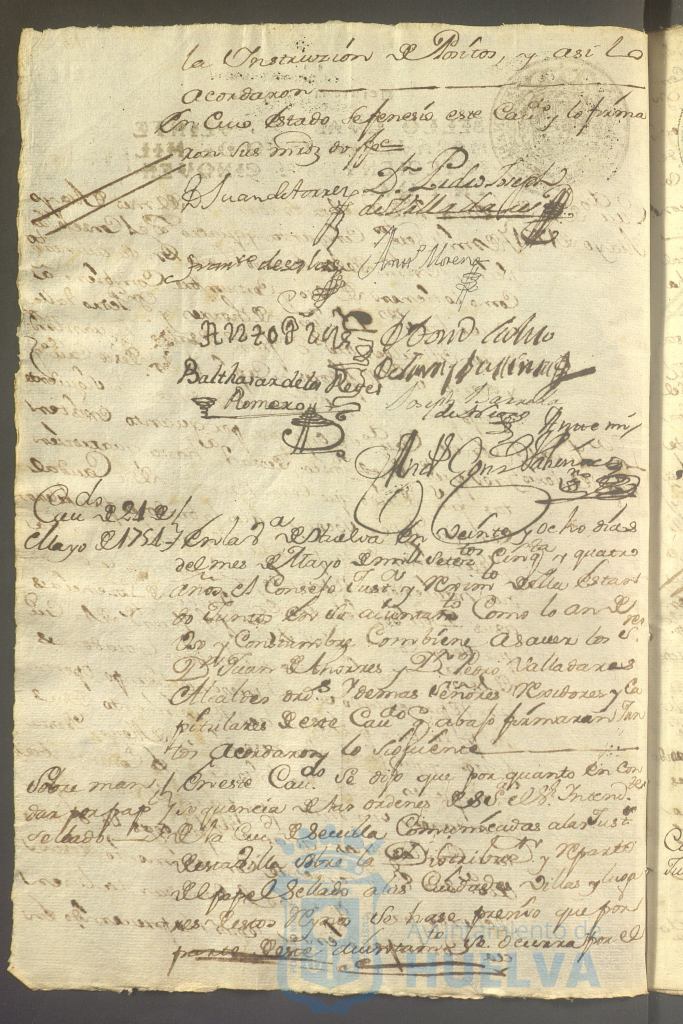 la Instruczión de Positos, y así lo
acordaron
En cuio estado se fenesio este Cau.do y lo firma
ron sus mrds doy fee
D Juan de torres D.n Pedro Joseph
de Valladares
Fran.co de
Ant.o Moreno
Balthasar de los Reyes
Romero
Joseph
de
Ante mi
Cau.do de 21 de
Mayo de 1754
En la V.a de Huelva en veinte y ocho dias
del mes de Mayo de mill setez.tos cinq.ta y quatro
años el Consejo Just.a y Rexim.to de ella estan
do Juntos en su aiuntam.to como lo an de
uso y Constumbre Combiene a saver los S.res
D.n Juan de thorres y D.n Pedro Valladares
Alcaldes ord.s y demas señores Rexidores y Ca
pitulares de este Cau.do q abajo firmaran Jun
tos acordaron lo siguiente
Sobre man
dar por pap
sellado
En este Cau.do se dijo que por quanto en con
sequencia de las ordenes de S.S. el S.r Intend.te
de la Ciu.d de Sevilla Comunicadas a la Just.a
de esta Villa sobre la Distribuz.n y Reparto
del papel sellado a las Ciudades Villas y luga
res de estos Reynos se hase presiso que por
parte de este aiuntam.to se ocurra por el
Ayuntamiento de
HUELVA